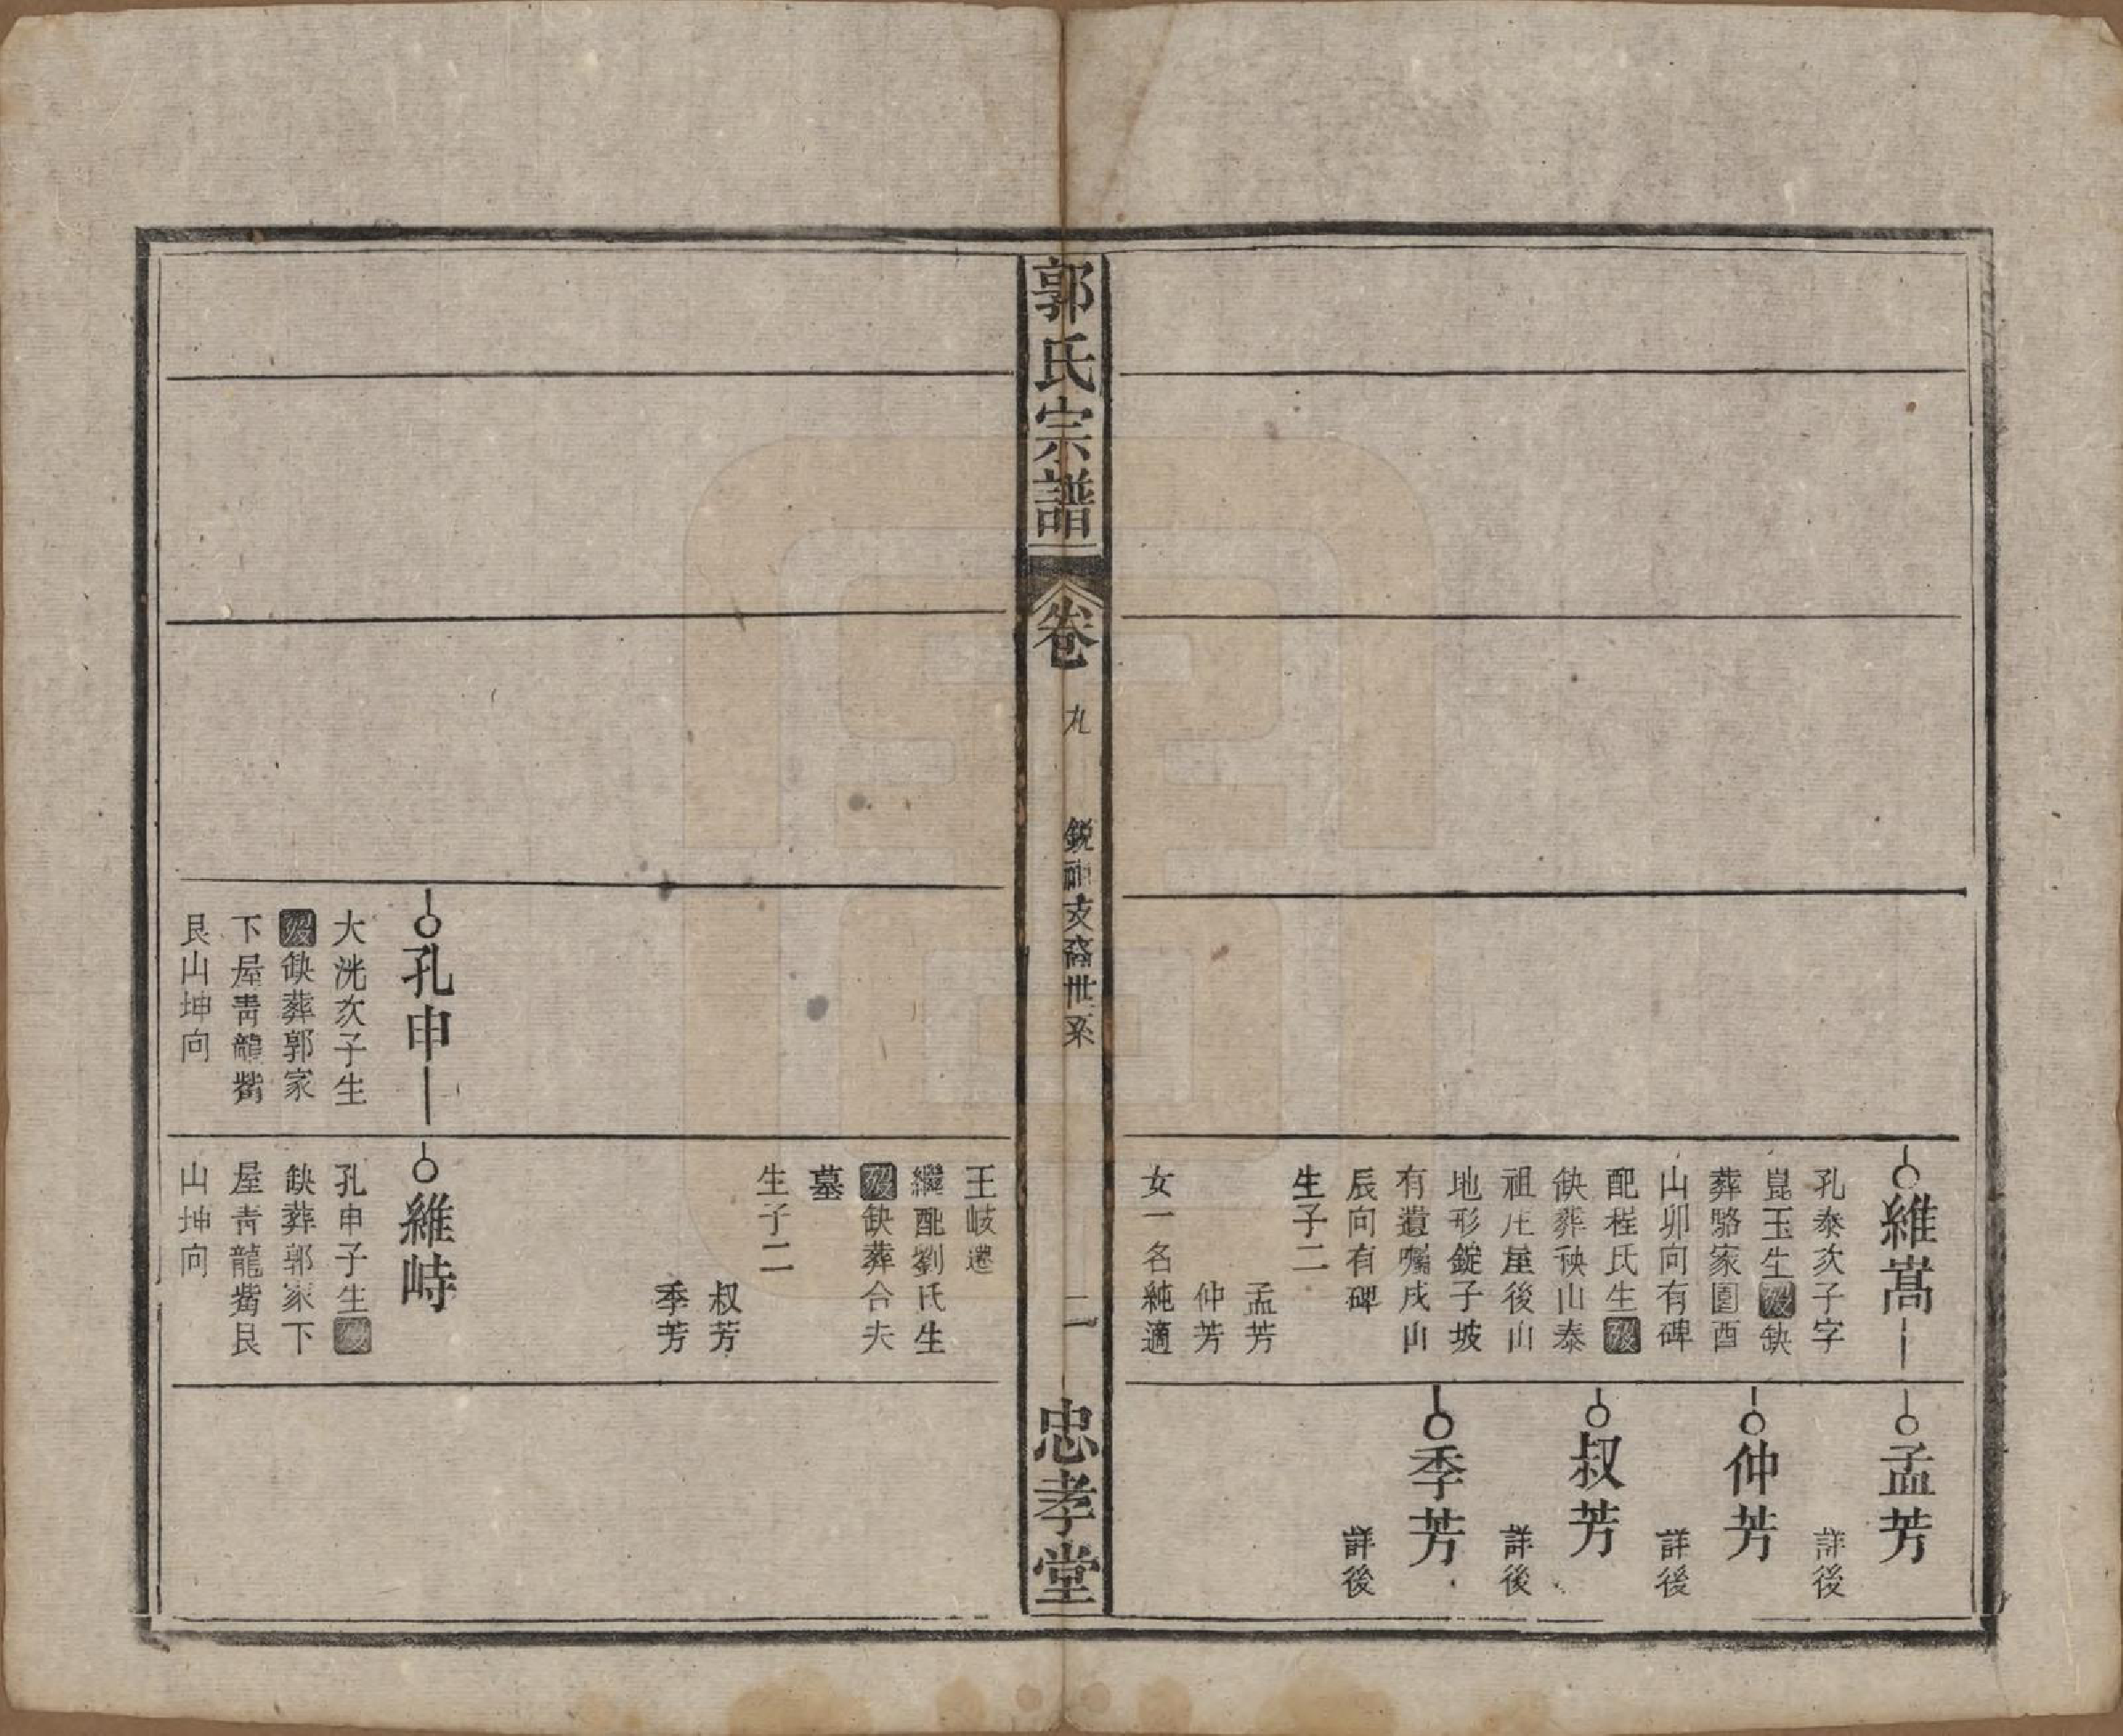 維嵩
孔泰次子字
崑玉生歿缺
葬駱家園酉
山卯向有碑
配程氏生歿
缺葬秧山泰
祖庄屋後山
地形錠子坡
有遺囑戌山
辰向有碑
生子二
孟芳
仲芳
女一名純適
孟芳
詳後
仲芳
詳後
叔芳
詳後
季芳
詳後
郭氏宗譜
卷九
銳祖支裔世系
二
忠孝堂
王岐遷
繼配劉氏生
歿缺葬合夫
墓
生子二
叔芳
季芳
孔申
大洸次子生
歿缺葬郭家
下屋青龍嘴
艮山坤向
維峙
孔申子生歿
缺葬郭家下
屋青龍嘴艮
山坤向